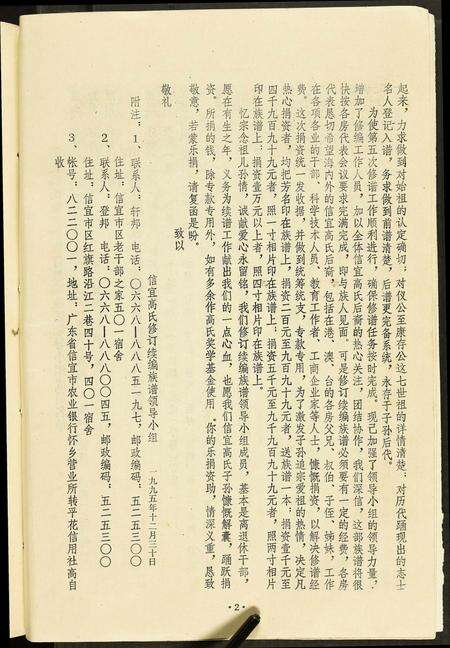 起来，力求做到对始祖的认定确切；对仪公至康存公这七世祖的详情清楚；对历代踊现出的志士
名人登记入谱，务求做到前谱清楚，后谱更完备系统，永存于子孙后代。
为使第五次修谱工作顺利进行，确保修谱任务按时完成，现已加强了领导小组的领导力量，
增加了修编工作人员，加以全体信宜高氏后裔的热心关注，团结协作，我们深信，这部族谱将很
快按各房代表会议要求完满完成，即与族人见面。可是修订续编族谱必须要有一定的经费，各房
代表恳切希望海内外的信宜高氏后裔，包括在港、澳、台的各房父兄、叔伯、子侄、姊妹，工作
在各项各业的干部、科学技术人员、教育工作者、工商企业家等人士，慷慨捐资，以解决修谱经
费。这次捐资统一发收据，并做到统筹统支，专款专用，为了激发子孙追宗爱祖的热情，决定凡
热心捐资者，均把芳名印在族谱上，捐资二百元至九百九十九元者，送族谱一本；捐资壹千元至
四千九百九十九元者，照一寸相片印在族谱上；捐资五千元至九千九百九十九元者，照两寸相片
印在族谱上；捐资壹万元以上者，照四寸相片印在族谱上。
忆宗念祖儿孙情，诚献爱心永留铭，我们修订续编族谱领导小组成员，基本是离退休干部，
愿在有生之年，义务为续谱工作献出我们的一点心血，也愿我们信宜高氏子孙慷慨解囊，踊跃捐
资。所捐的钱，除专款专用外，如有多余作高氏奖学基金使用。你的乐捐资助，情深义重，恳致
敬意，若蒙乐捐，请复函是盼。
致以
敬礼
信宜高氏修订续编族谱领导小组
一九九五年十二月二十日
附注：1、联系人：轩邦 电话：〇六六八—八八八五一九七，邮政编码：五二五三〇〇
住址：信宜市区老干部之家五〇一宿舍
2、联系人：登邦 电话：〇六六八—八八八〇〇四五，邮政编码：五二五三〇〇
住址：信宜市区红旗路沿江二巷四十号，四〇一宿舍
3、帐号：八二二〇〇一，地址：广东省信宜市农业银行怀乡营业所转平花信用社高自
收
·2·